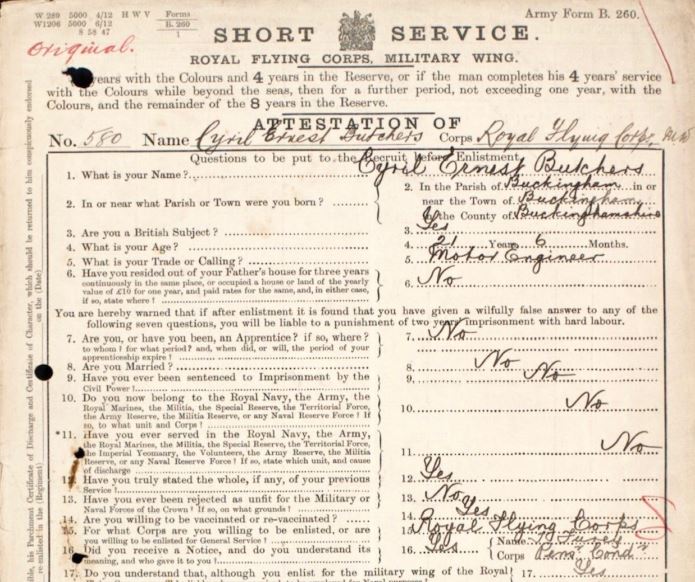 W 289 5000 4/12 H W V
W1206 5000 6/12
8 58 47
Forms
B. 260
1
Army Form B. 260.
Original.
SHORT SERVICE.
ROYAL FLYING CORPS, MILITARY WING.
years with the Colours and 4 years in the Reserve, or if the man completes his 4 years' service
with the Colours while beyond the seas, then for a further period, not exceeding one year, with the
Colours, and the remainder of the 8 years in the Reserve.
ATTESTATION OF
No. 580 Name Cyril Ernest Butchers Corps Royal Flying Corps
Questions to be put to the Recruit before Enlistment.
1. What is your Name? Cyril Ernest Butchers
2. In or near what Parish or Town were you born?
2. In the Parish of Buckingham in or
near the Town of Buckingham
in the County of Buckinghamshire
3. Are you a British Subject? 3. Yes
4. What is your Age? 4. 21 Years 6 Months.
5. What is your Trade or Calling? 5. Motor Engineer
6. Have you resided out of your Father's house for three years
continuously in the same place, or occupied a house or land of the yearly
value of £10 for one year, and paid rates for the same, and, in either case,
if so, state where? 6. No
You are hereby warned that if after enlistment it is found that you have given a wilfully false answer to any of the
following seven questions, you will be liable to a punishment of two years' imprisonment with hard labour.
7. Are you, or have you been, an Apprentice? if so, where?
to whom? for what period? and, when did, or will, the period of your
apprenticeship expire? 7. No
8. Are you Married? 8. No
9. Have you ever been sentenced to Imprisonment by the
Civil Power? 9. No
10. Do you now belong to the Royal Navy, the Army, the
Royal Marines, the Militia, the Special Reserve, the Territorial Force,
the Army Reserve, the Militia Reserve, or any Naval Reserve Force? If
so, to what unit and Corps? 10. No
*11. Have you ever served in the Royal Navy, the Army,
the Royal Marines, the Militia, the Special Reserve, the Territorial Force,
the Imperial Yeomanry, the Volunteers, the Army Reserve, the Militia
Reserve, or any Naval Reserve Force? If so, state which unit, and cause
of discharge 11. No
12. Have you truly stated the whole, if any, of your previous
Service? 12. Yes
13. Have you ever been rejected as unfit for the Military or
Naval Forces of the Crown? If so, on what grounds? 13. No
14. Are you willing to be vaccinated or re-vaccinated? 14. Yes
15. For what Corps are you willing to be enlisted, or are
you willing to be enlisted for General Service? Royal Flying Corps
16. Did you receive a Notice, and do you understand its
meaning, and who gave it to you? 16. Yes Name
Corps
17. Do you understand that, although you enlist for the military wing of the Royal 17. Yes